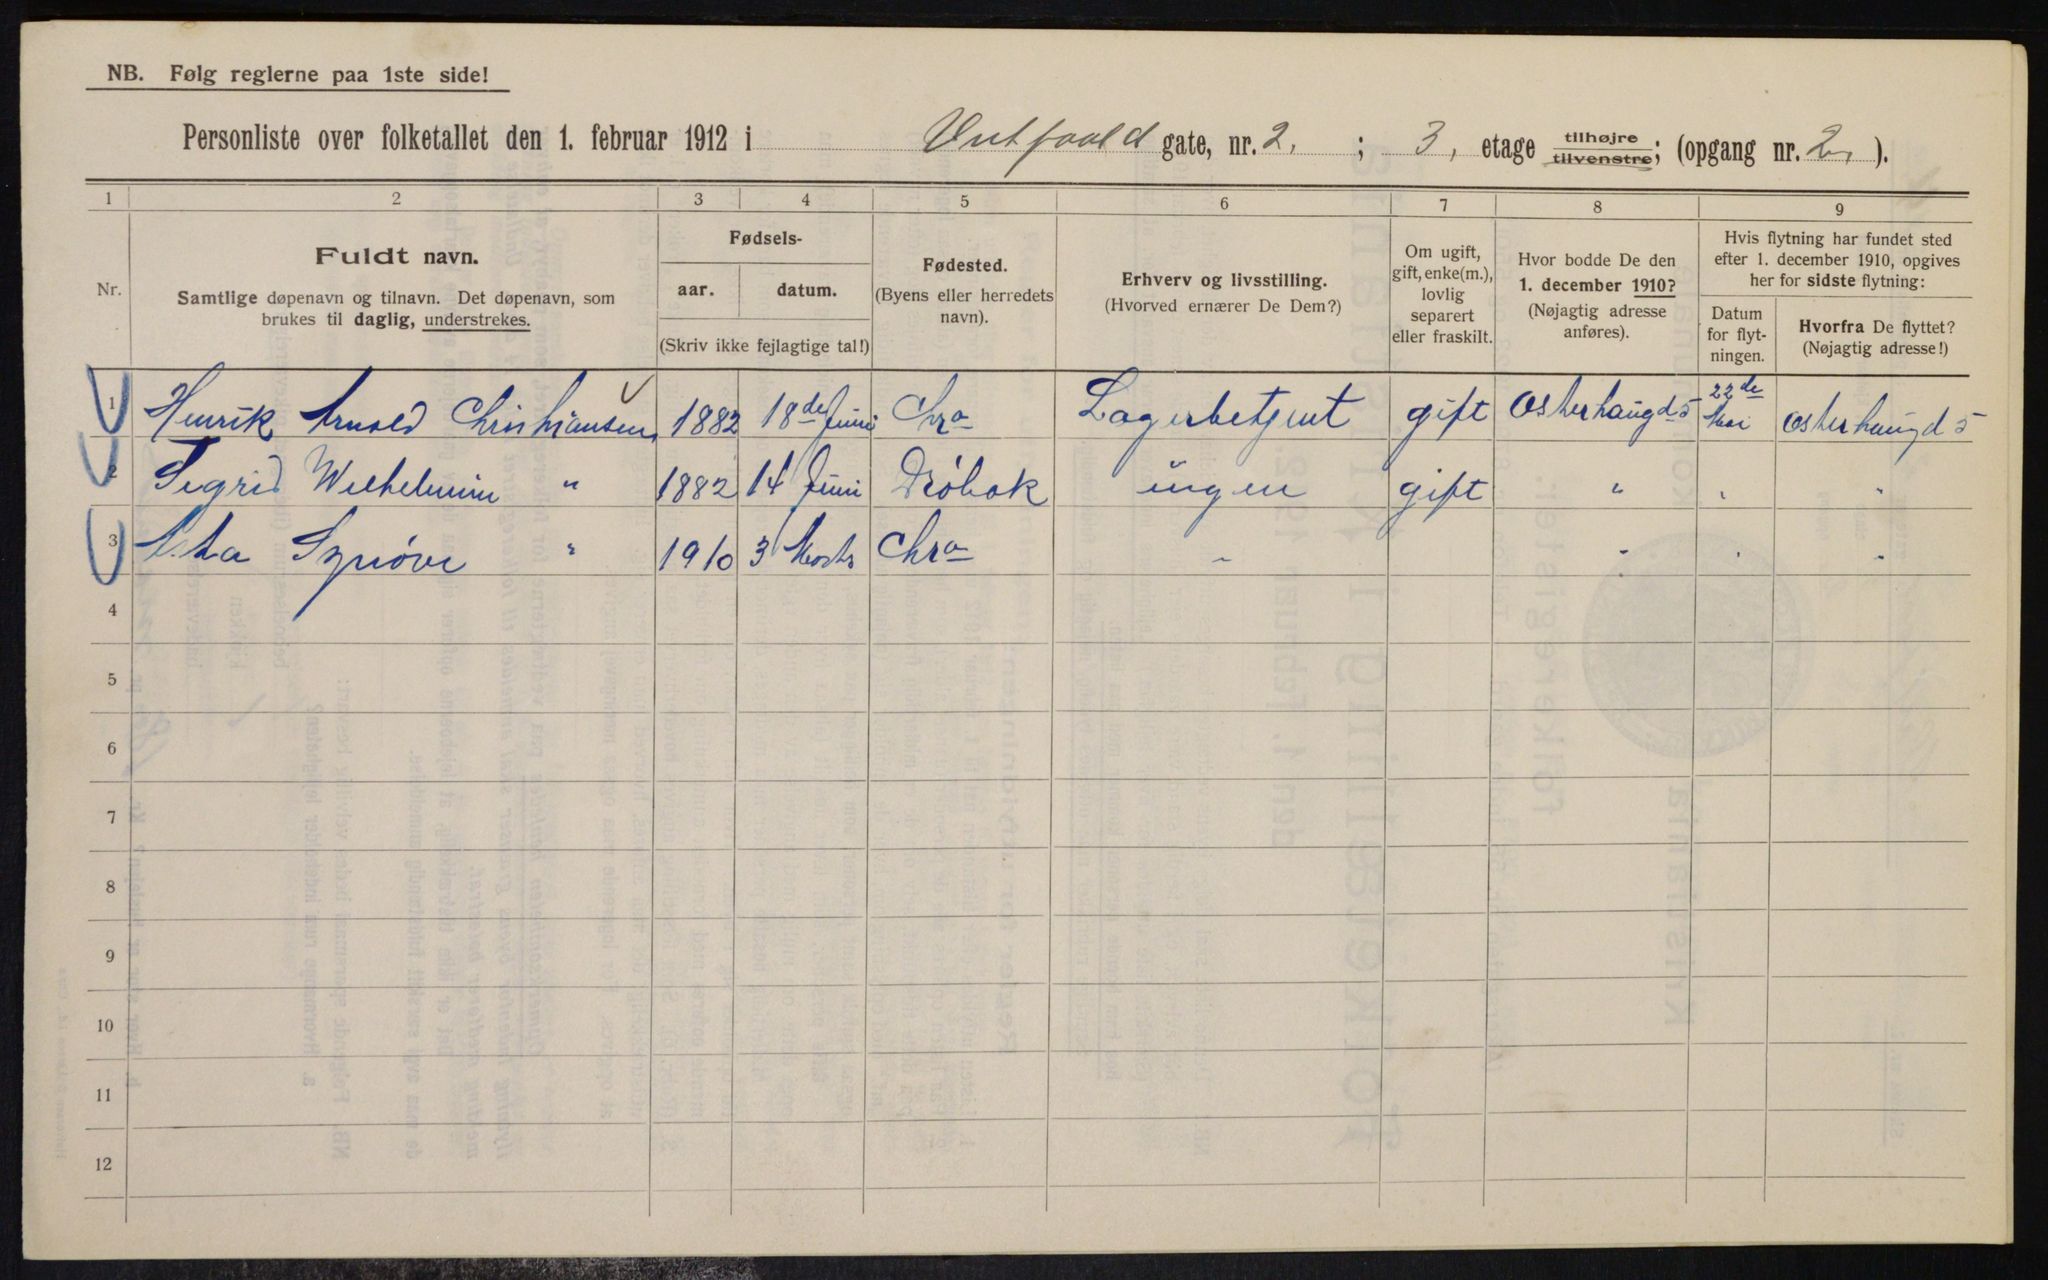 NB. Følg reglerne paa 1ste side!
Personliste over folketallet den 1. februar 1912 i gate, nr. 2, ; 3, etage tilhøjre tilvenstre; (opgang nr. 2, ).
1 2 3 4 5 6 7 8 9
Nr.
Fuldt navn.
Samtlige døpenavn og tilnavn. Det døpenavn, som
brukes til daglig, understrekes.
Fødsels-
aar. datum.
(Skriv ikke fejlagtige tal!)
Fødested.
(Byens eller herredets
navn).
Erhverv og livsstilling.
(Hvorved ernærer De Dem?)
Om ugift,
gift, enke(m.),
lovlig
separert
eller fraskilt.
Hvor bodde De den
1. december 1910?
(Nøjagtig adresse
anføres).
Hvis flytning har fundet sted
efter 1. december 1910, opgives
her for sidste flytning:
Datum
for flyt-
ningen.
Hvorfra De flyttet?
(Nøjagtig adresse!)
1 Henrik Arnold Christiansen 1882 18de Juni Chra Lagerbetjent gift Osterhaugd 5 22de Mai Osterhaugd 5
2 Sigrid Wilhelmine " 1882 14 Juni Drøbak ingen gift " " "
3 Synøve " 1910 3 Chra " " " "
4
5
6
7
8
9
10
11
12